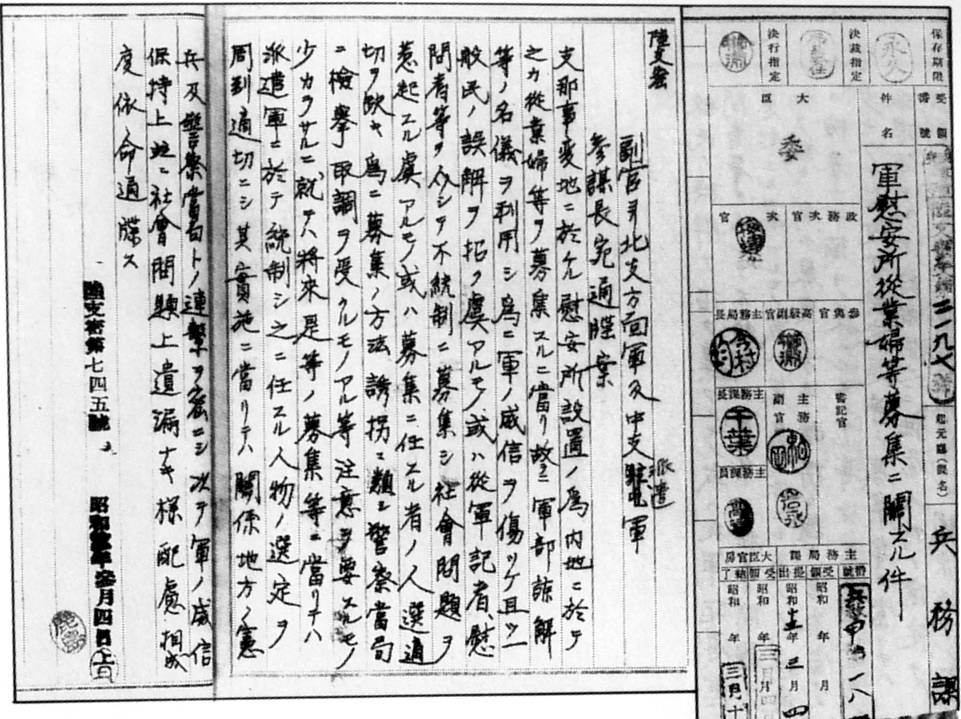 保存期限
永久
決裁指定
決行指定
受領番號
件名
軍慰安所從業婦等募集ニ關スル件
大臣
委
政務次官
次官
參與官
高級副官
主務局長
今村
主務課長
千葉
主務副官
主務課員
書記官
二一九七
起元廳(課名)
兵務課
主務局課
大臣官房
昭和
年
月
陸支密
副官ヨリ北支方面軍及中支派遣軍
參謀長宛通牒案
支那事變地ニ於ケル慰安所設置ノ爲内地ニ於テ
之カ從業婦等ヲ募集スルニ當リ故ラニ軍部諒解
等ノ名儀ヲ利用シ爲ニ軍ノ威信ヲ傷ツケ且ツ一
般民ノ誤解ヲ招ク虞アルモノ或ハ從軍記者、慰
問者等ヲ介シテ不統制ニ募集シ社會問題ヲ
惹起スル虞アルモノ或ハ募集ニ任スル者ノ人選適
切ヲ欠キ爲ニ募集ノ方法誘拐ニ類シ警察當局
ニ檢擧取調ヲ受クルモノアル等注意ヲ要スルモノ
少カラサルニ就テハ將來是等ノ募集等ニ當リテハ
派遣軍ニ於テ統制シ之ニ任スル人物ノ選定ヲ
周到適切ニシ其實施ニ當リテハ關係地方ノ憲
兵及警察當局トノ連繋ヲ密ニシ次テ軍ノ威信
保持上並ニ社會問題上遺漏ナキ樣配慮相成
度依命通牒ス
陸支密第七四五號
昭和拾參年參月四日